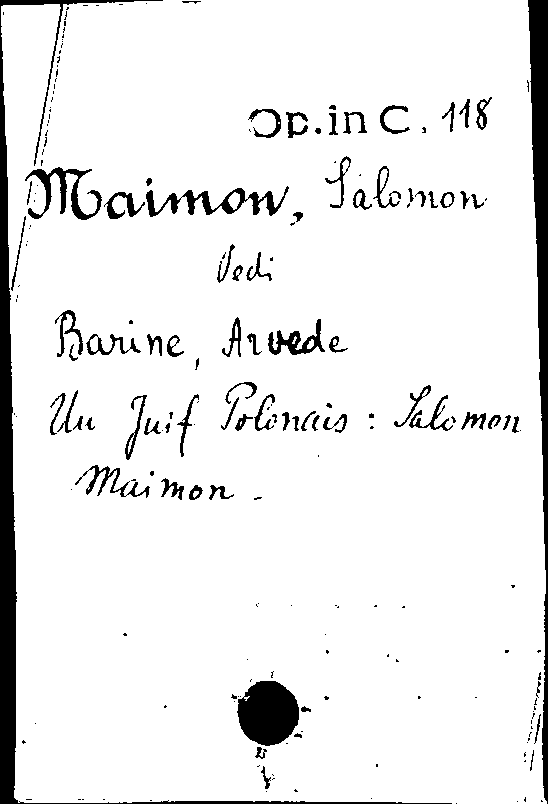 Op. in C. 118
Maimon, Salomon
Vedi
Barine, Arvede
Un Juif Polonais : Salomon
Maimon.